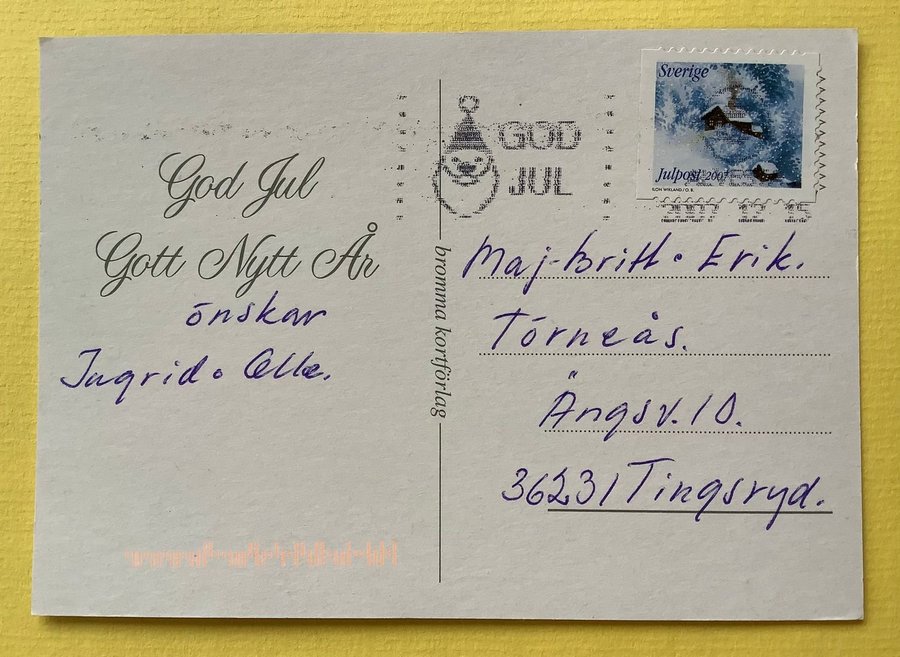 God Jul
Gott Nytt År
önskar
Ingrid o Olle.
bromma kortförlag
GOD
JUL
Sverige
Julpost 2007
Maj-Britt o Erik.
Törneås.
Ängsv. 10.
36231 Tingsryd.